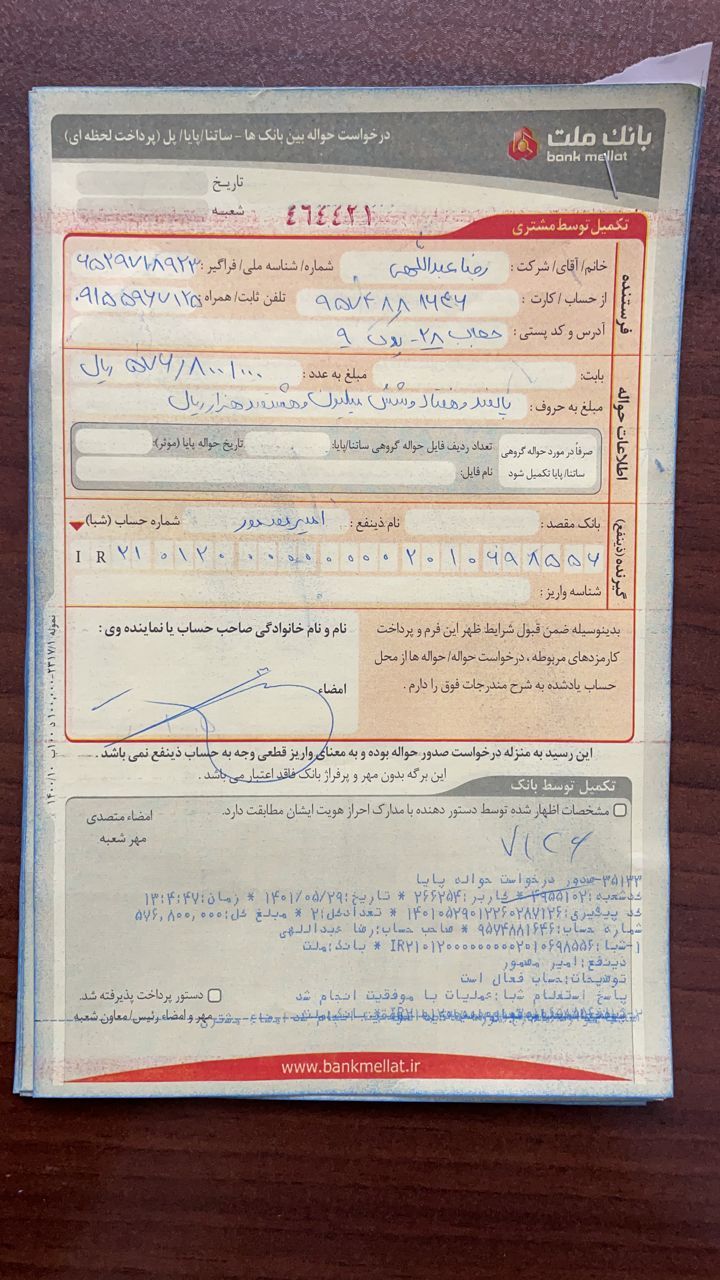 بانک ملت
bank mellat
درخواست حواله بین بانک ها - ساتنا/پایا/پل (پرداخت لحظه ای)
تاریخ
شعبه
٤٦٤٤٢١
تکمیل توسط مشتری
فرستنده
خانم/آقای/شرکت: رضا عبداللهی شماره/شناسه ملی/فراگیر:
از حساب/کارت: ۹۵۷۴۸۸۱۶۴۶ تلفن ثابت/همراه: ۰۹۱۵۵۹۶۷۱۲۵
آدرس و کد پستی: حجاب ۲۸ - پلاک ۹
اطلاعات حواله
بابت: مبلغ به عدد: ۵۷۶/۸۰۰/۰۰۰ ریال
مبلغ به حروف: پانصد و هفتاد و شش میلیون و هشتصد هزار ریال
صرفاً در مورد حواله گروهی ساتنا/پایا تکمیل شود
تعداد ردیف فایل حواله گروهی ساتنا/پایا: تاریخ حواله پایا (موثر):
نام فایل:
گیرنده (ذینفع)
بانک مقصد: نام ذینفع: امیر شماره حساب (شبا)
IR ۲۱۰۱۲۰۰۰۰۰۰۰۰۰۲۰۱۰۶۹۸۵۵۶
شناسه واریز:
بدینوسیله ضمن قبول شرایط ظهر این فرم و پرداخت
کارمزدهای مربوطه، درخواست حواله/حواله ها از محل
حساب یادشده به شرح مندرجات فوق را دارم.
نام و نام خانوادگی صاحب حساب یا نماینده وی:
امضاء
این رسید به منزله درخواست صدور حواله بوده و به معنای واریز قطعی وجه به حساب ذینفع نمی باشد.
این برگه بدون مهر و پرفراژ بانک فاقد اعتبار می باشد.
تکمیل توسط بانک
مشخصات اظهار شده توسط دستور دهنده با مدارک احراز هویت ایشان مطابقت دارد.
امضاء متصدی
مهر شعبه
۳۵۱۳۳-صدور درخواست حواله پایا
کدشعبه:۴۹۵۵۱۰۲ * کاربر:۲۶۶۲۵۴ * تاریخ:۱۴۰۱/۰۵/۲۹ * زمان:۱۳:۴:۴۷
کد پیگیری:۱۴۰۱۰۵۲۹۰۱۲۲۶۰۲۸۷۱۲۶ * تعدادکل:۲ * مبلغ کل:۵۷۶,۸۰۰,۰۰۰
شماره حساب:۹۵۷۴۸۸۱۶۴۶ * صاحب حساب:رضا عبداللهی
۱-شبا:IR۲۱۰۱۲۰۰۰۰۰۰۰۰۰۲۰۱۰۶۹۸۵۵۶ * بانک:ملت
ذینفع:امیر
توضیحات:حساب فعال است
پاسخ استعلام شبا:عملیات با موفقیت انجام شد
دستور پرداخت پذیرفته شد.
مهر و امضاء رئیس/معاون شعبه
www.bankmellat.ir